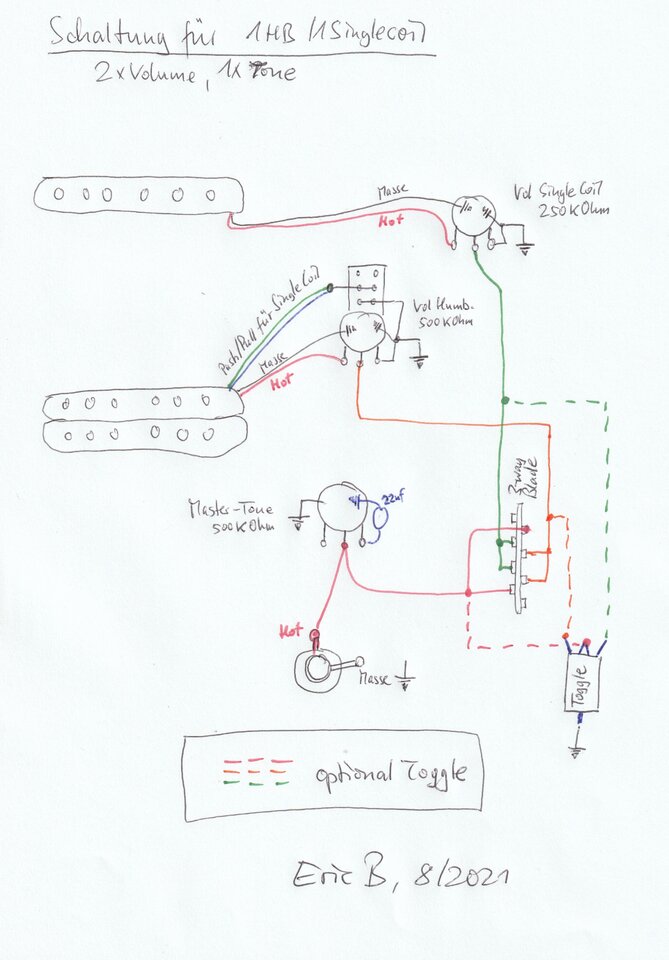 Schaltung für 1HB/1Singlecoil
2xVolume, 1x Tone
Masse
Hot
Vol Single Coil
250KOhm
Push/Pull für Single Coil
Vol Humb.
500KOhm
Masse
Hot
3way
Blade
Master-Tone
500KOhm
22nF
Hot
Masse
Toggle
optional Toggle
Eric B, 8/2021